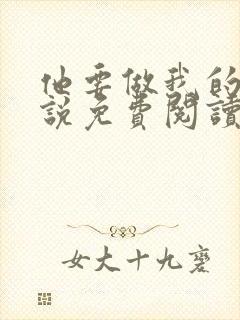 他要做我的
說免費閱讀
女大十九變